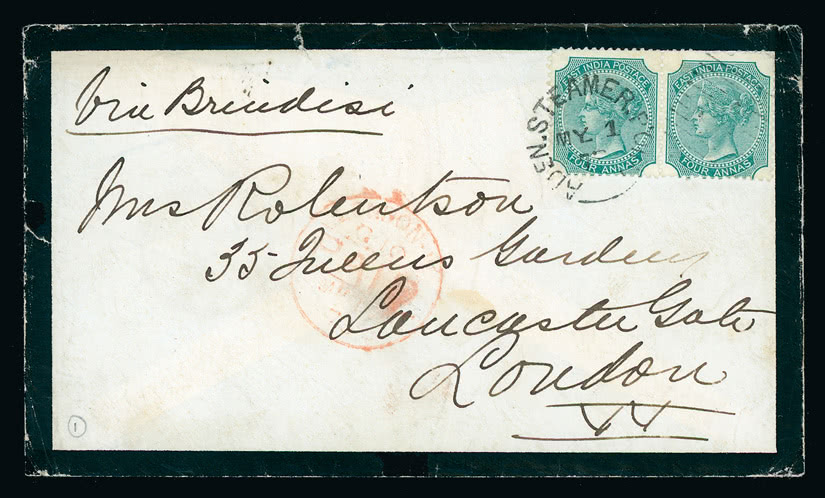 Via Brindisi
EAST INDIA POSTAGE
FOUR ANNAS
EAST INDIA POSTAGE
FOUR ANNAS
ADEN-STEAMER.
MY 1
Mrs Robertson
35 Queens Gardens
Lancaster Gate
London
1